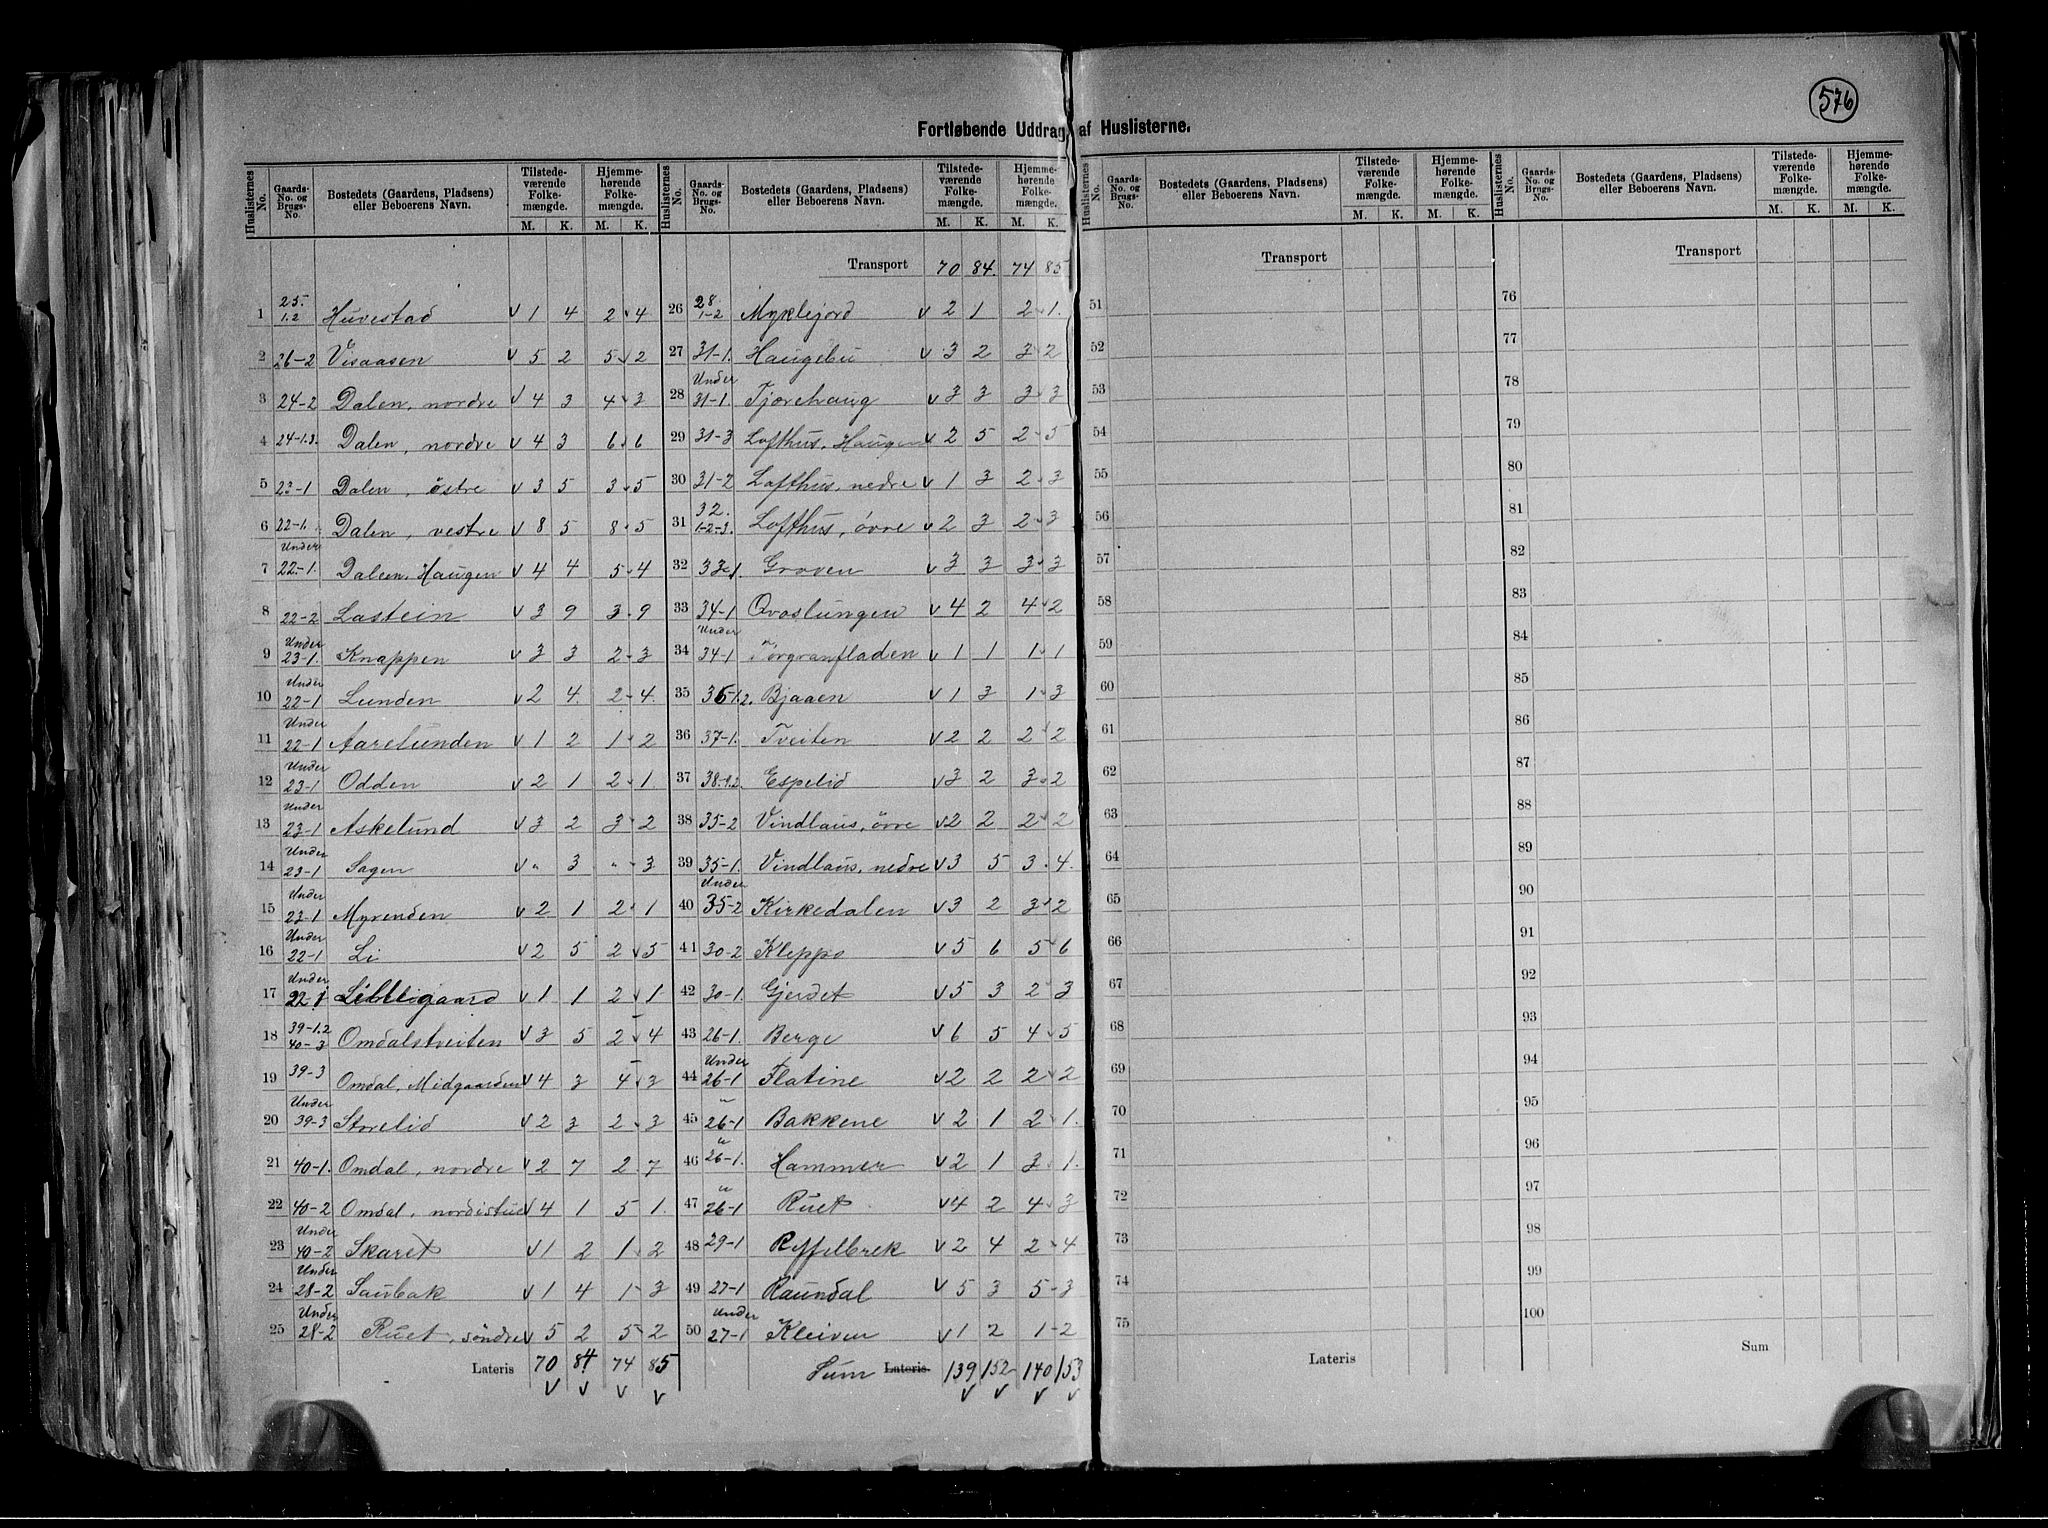 576
Fortløbende Uddrag af Huslisterne.
Huslisternes No. Gaards-No. og Brugs-No. Bostedets (Gaardens, Pladsens) eller Beboerens Navn. Tilstedeværende Folkemængde. M. K. Hjemmehørende Folkemængde. M. K.
1 25. 1.2 Huvestad v 1 4 2 v 4
2 26-2 Visaasen v 5 2 5 v 2
3 24-2 Dalen, nordre v 4 3 4 v 3
4 24-1.3. Dalen, nordre v 4 3 6 v 6
5 23-1 Dalen, östre v 3 5 3 v 5
6 22-1. Dalen, vestre v 8 5 8 v 5
7 Under 22-1. Dalen, Haugen v 4 4 5 v 4
8 22-2 Lastein v 3 9 3 v 9
9 Under 23-1. Knappen v 3 3 2 v 3
10 Under 22-1 Lunden v 2 4. 2 v 4.
11 Under 22-1 Aarelunden v 1 2 1 v 2
12 Under 23-1 Odden v 2 1 2 v 1.
13 Under 23-1 Askelund v 3 2 3 v 2
14 Under 23-1 Sagen v " 3 " v 3
15 Under 23-1 Myrenden v 2 1 2 v 1
16 Under 22-1 Li v 2 5 2 v 5
17 Under 22-1 Lilleigaard v 1 1 2 v 1
18 39-1.2 40-3 Omdalstveiten v 3 5 2 v 4
19 39-3 Omdal, Midgaarden v 4 3 4 v 3
20 Under 39-3 Storelid v 2 3 2 v 3
21 40-1. Omdal, nordre v 2 7 2 v 7
22 40-2 Omdal, nordistue v 4 1 5 v 1.
23 Under 40-2 Skaret v 1 2 1 v 2
24 Under 28-2 Saubak v 1 4 1 v 3
25 Under 28-2 Ruet, söndre v 5 2 5 v 2
Lateris 70 84 74 85
v v v v
Huslisternes No. Gaards-No. og Brugs-No. Bostedets (Gaardens, Pladsens) eller Beboerens Navn. Tilstedeværende Folkemængde. M. K. Hjemmehørende Folkemængde. M. K.
Transport 70 84. 74 85
26 28 1-2 Myklejord v 2 1 2 v 1.
27 31-1. Haugebu v 3 2 3 v 2
28 Under 31-1. Tjørehaug v 3 3 3 v 3
29 31-3 Lofthus, Haugen v 2 5 2 v 5
30 31-2 Lofthus, nedre v 1 3 2 v 3
31 32. 1-2-3. Lofthus, øvre v 2 3 2 v 3
32 33-1. Groven v 3 3 3 v 3
33 34-1 Ovaslungen v 4 2 4 v 2
34 Under 34-1 Torgranfladen v 1 1 1 v 1
35 36-1.2. Bjaaen v 1 3 1 v 3
36 37-1. Tveiten v 2 2 2 v 2
37 38-1.2. Espelid v 3 2 3 v 2
38 35-2 Vindlaus, övre v 2 2 2 v 2
39 35-1. Vindlaus, nedre v 3 5 3 . 4.
40 Under 35-2 Kirkedalen v 3 2 3 v 2
41 30-2 Kleppo v 5 6 5 v 6
42 30-1. Gjerdet v 5 3 2 v 3
43 26-1. Berge v 6 5 4 v 5
44 Under 26-1 Flatine v 2 2 2 v 2
45 " 26-1 Bakkene v 2 1 2 v 1.
46 " 26-1. Hammer v 2 1 3 1.
47 " 26-1 Ruet v 4 2 4 v 3
48 29-1 Reffelbrek v 2 4 2 v 4
49 27-1 Raundal v 5 3 5 - 3
50 Under 27-1 Kleiven v 1 2 1 - 2
Sum Lateris 139 152 140 153
v v v v
Huslisternes No. Gaards-No. og Brugs-No. Bostedets (Gaardens, Pladsens) eller Beboerens Navn. Tilstedeværende Folkemængde. M. K. Hjemmehørende Folkemængde. M. K.
Transport
51
52
53
54
55
56
57
58
59
60
61
62
63
64
65
66
67
68
69
70
71
72
73
74
75
Lateris
Huslisternes No. Gaards-No. og Brugs-No. Bostedets (Gaardens, Pladsens) eller Beboerens Navn. Tilstedeværende Folkemængde. M. K. Hjemmehørende Folkemængde. M. K.
Transport
76
77
78
79
80
81
82
83
84
85
86
87
88
89
90
91
92
93
94
95
96
97
98
99
100
Sum